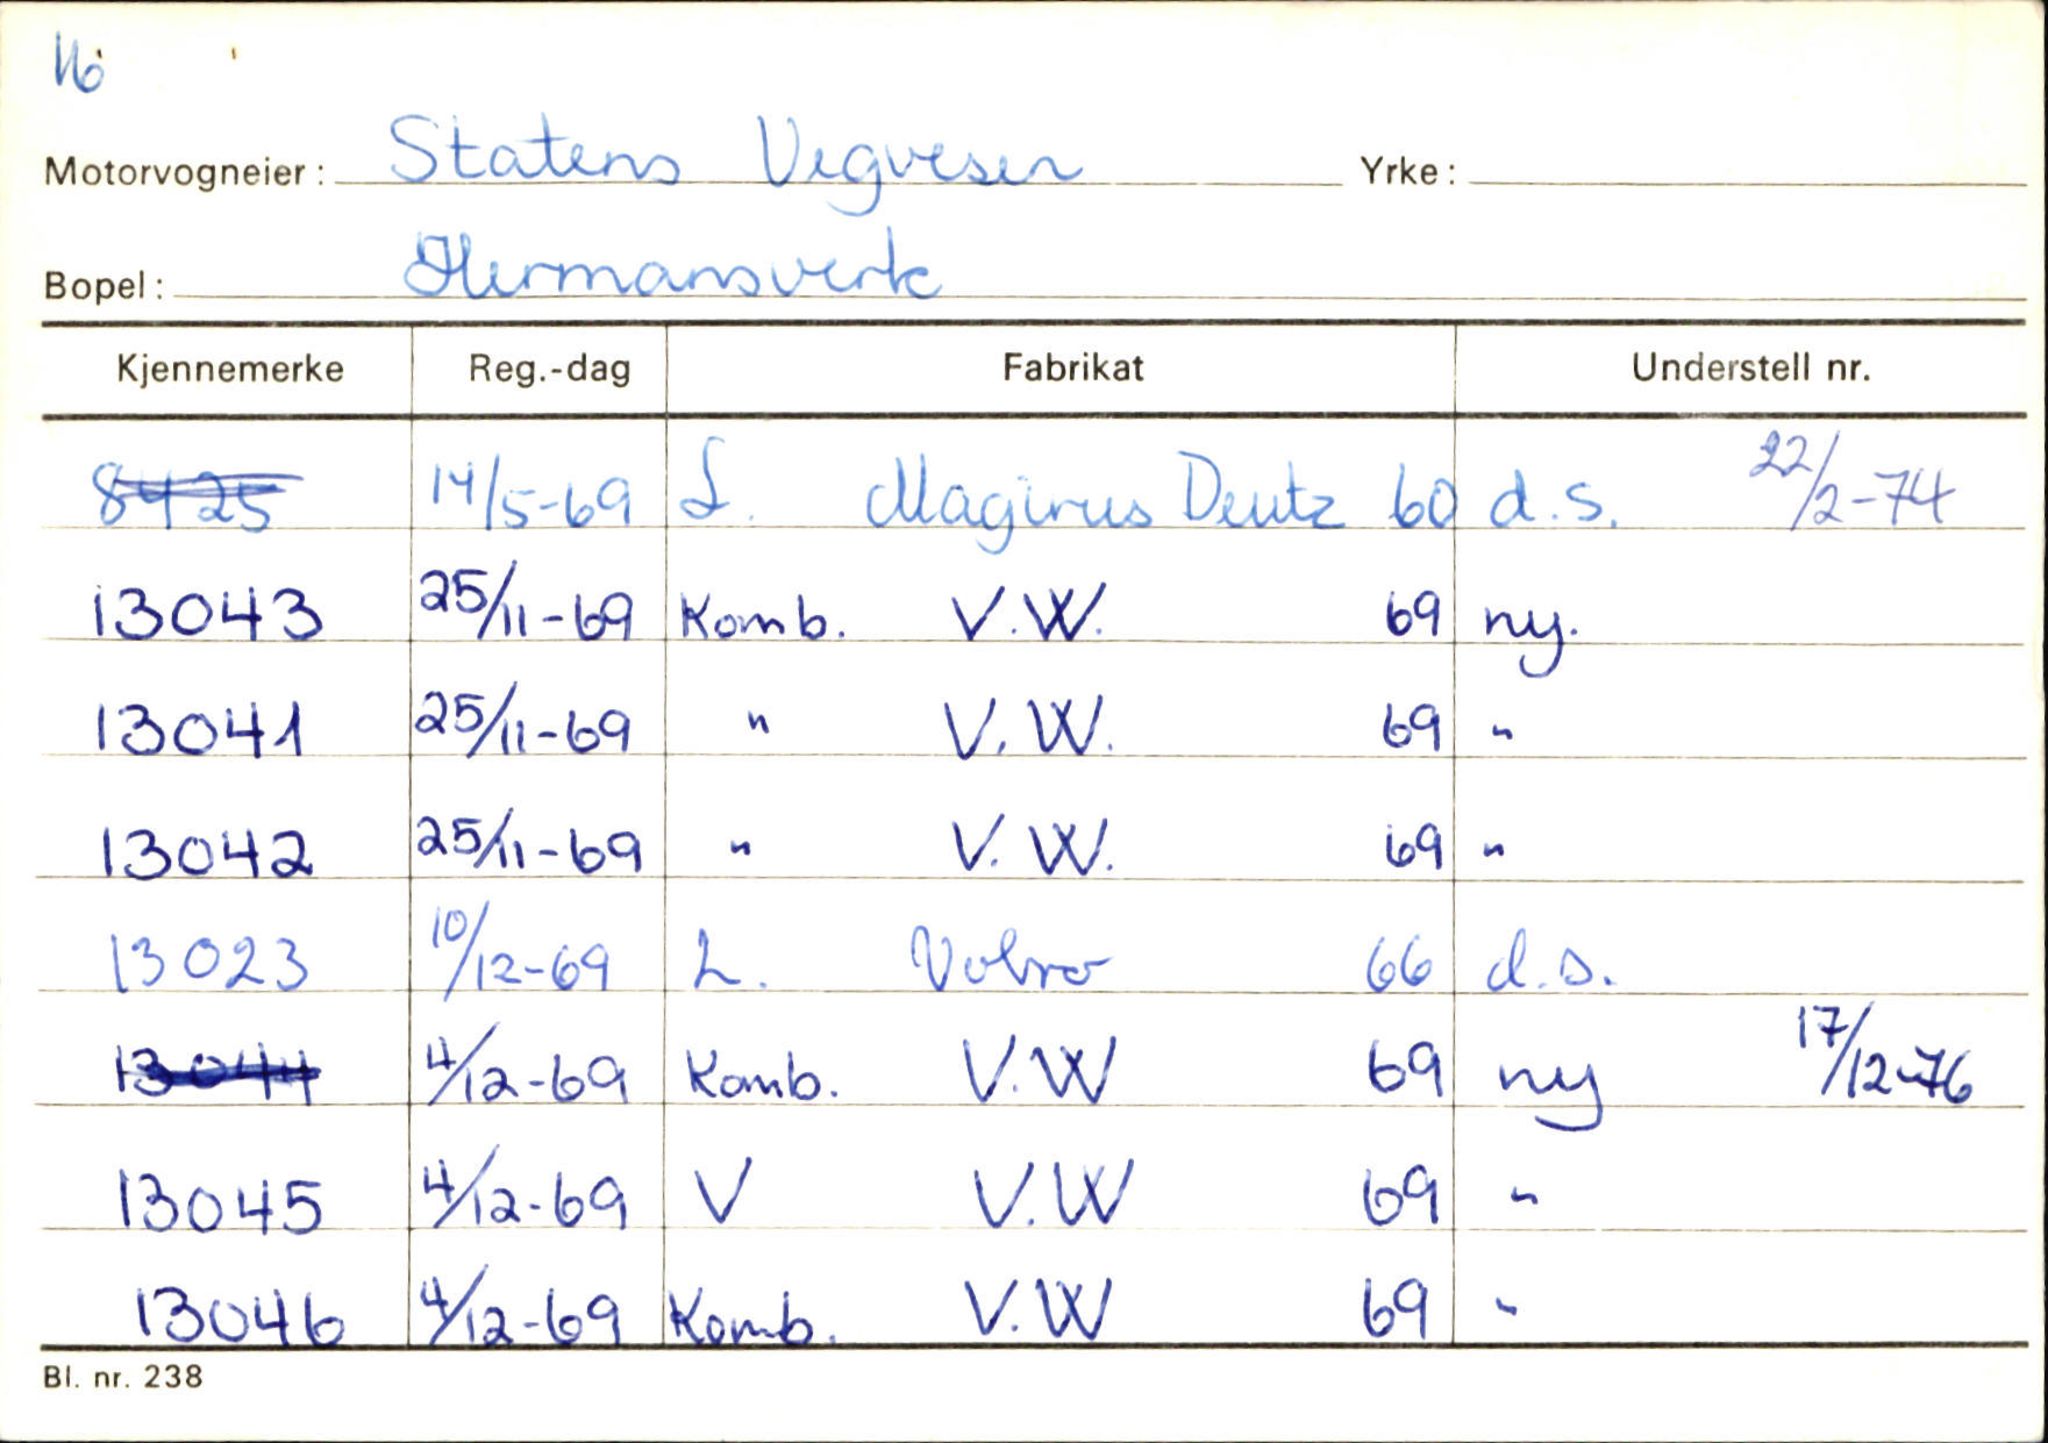 16
Motorvogneier: Statens Vegvesen Yrke:
Bopel: Hermansverk
Kjennemerke Reg.-dag Fabrikat Understell nr.
8425 14/5-69 L. Magirus Deutz 60 d.s. 22/2-74
13043 25/11-69 Komb. V.W. 69 ny.
13041 25/11-69 " V.W. 69 "
13042 25/11-69 " V.W. 69 "
13023 10/12-69 L. Volvo 66 d.s.
13044 4/12-69 Komb. V.W 69 ny 17/12-76
13045 4/12-69 V V.W 69 "
13046 4/12-69 Komb. V.W 69 "
Bl. nr. 238